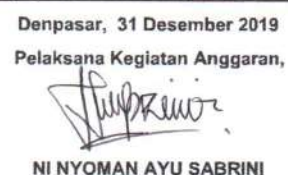 Denpasar, 31 Desember 2019
Pelaksana Kegiatan Anggaran,
NI NYOMAN AYU SABRINI